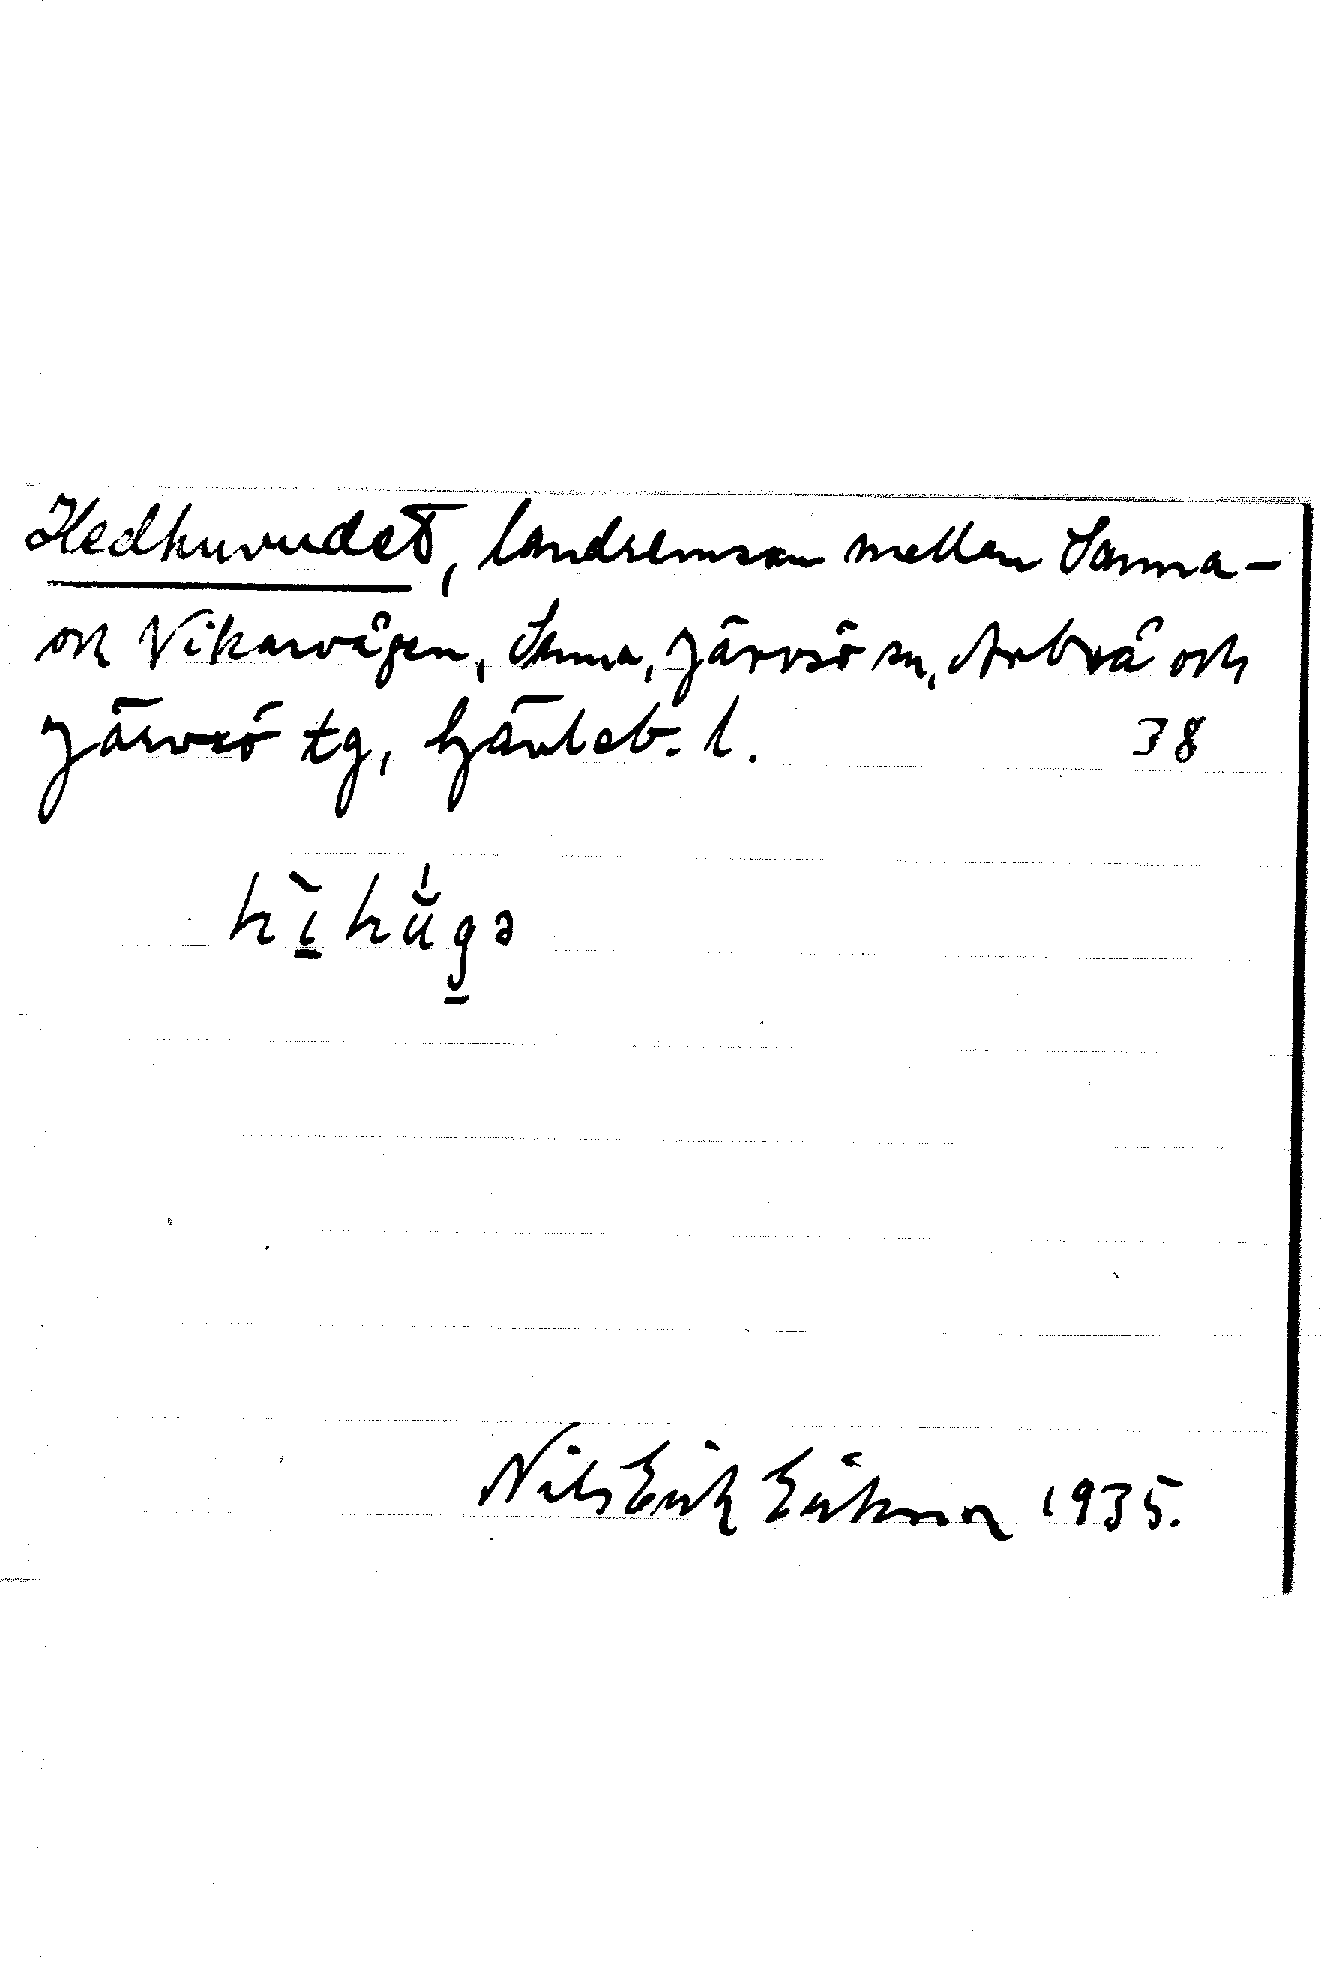 Hedhuvudet, landremsan mellan Sanna-
och Vikarvägen, Sanna, Järvsö sn, Arbrå och
Järvsö tg, Gävleb. l. 38
hìhŭgə
Nils Erik Eriksson 1935.